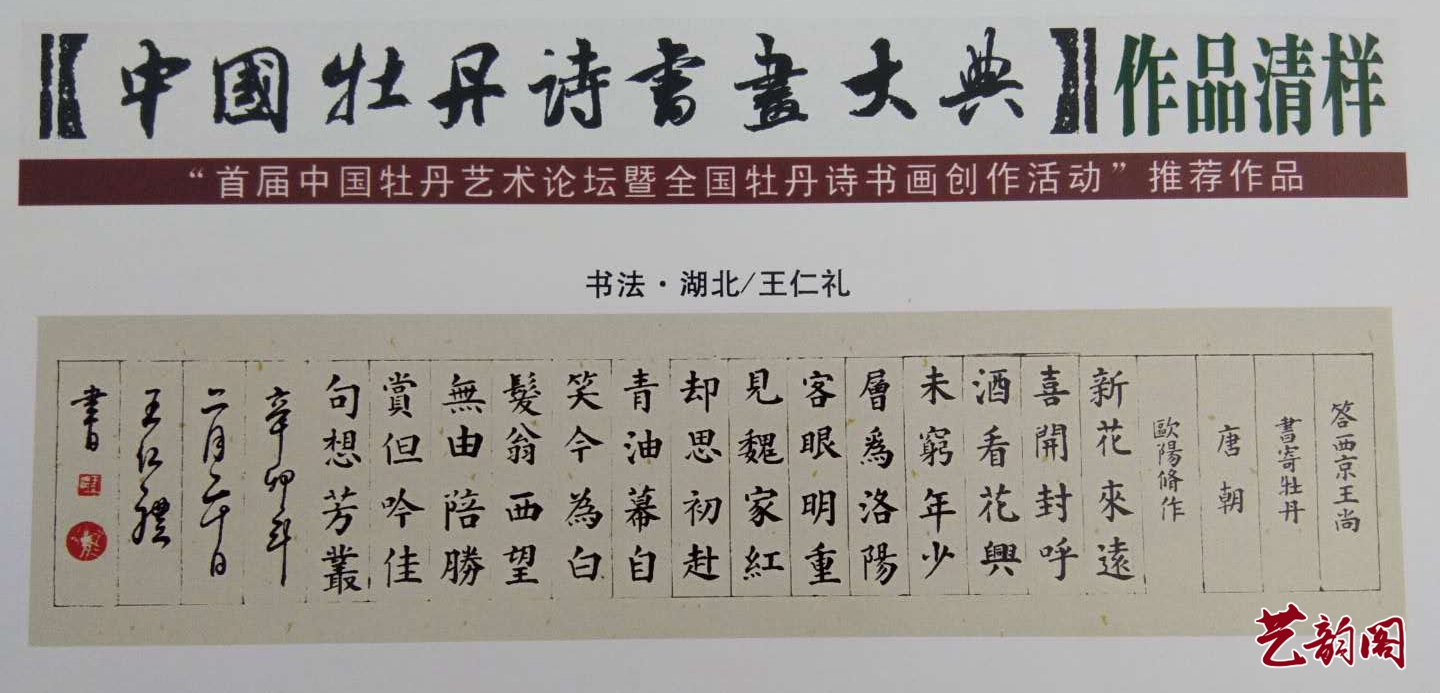 【中國牡丹诗書畫大典】作品清样
“首届中国牡丹艺术论坛暨全国牡丹诗书画创作活动”推荐作品
书法·湖北/王仁礼
答西京王尚
書寄牡丹
唐朝
歐陽脩作
新花來遠
喜開封呼
酒看花興
未窮年少
層爲洛陽
客眼明重
見魏家紅
却思初赴
青油幕自
笑今為白
髮翁西望
無由陪勝
賞但吟佳
句想芳叢
辛卯年
二月二十日
王仁禮
書
艺韵阁